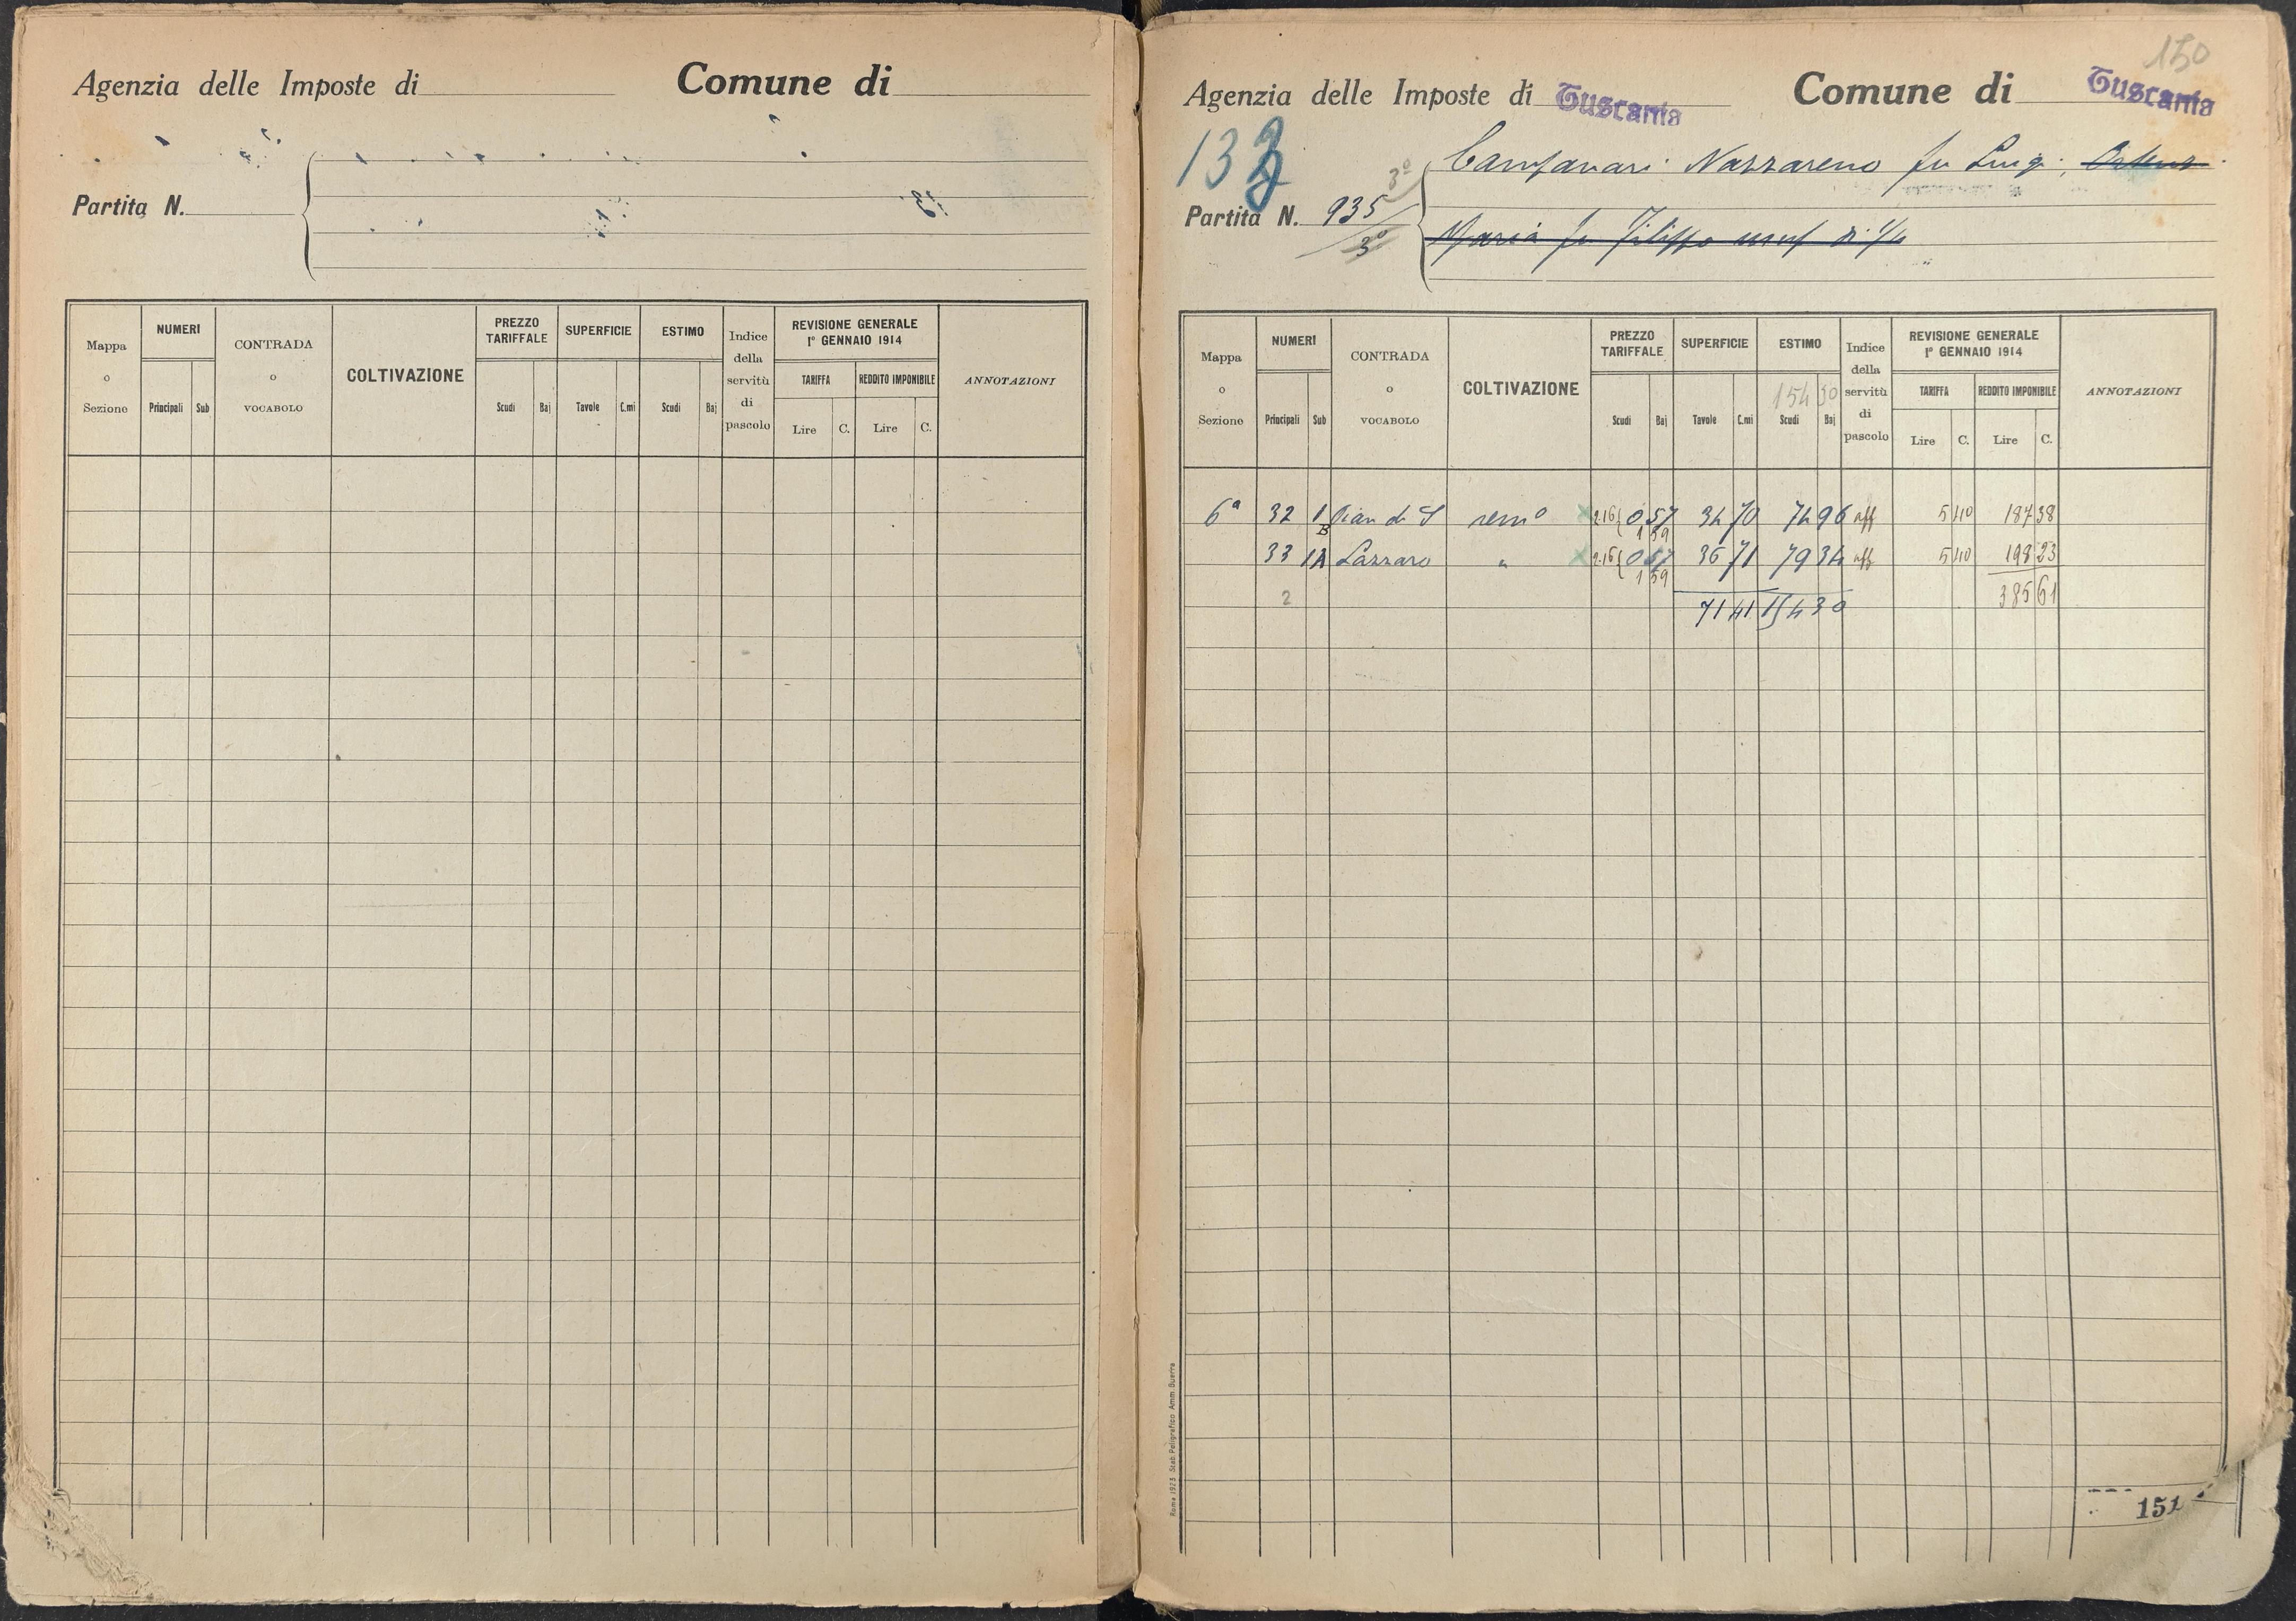 Agenzia delle Imposte di Comune di
Partita N.
Mappa o Sezione
NUMERI
Principali Sub
CONTRADA o VOCABOLO
COLTIVAZIONE
PREZZO TARIFFALE
Scudi Baj
SUPERFICIE
Tavole C.mi
ESTIMO
Scudi Baj
Indice della servitù di pascolo
REVISIONE GENERALE
1° GENNAIO 1914
TARIFFA
Lire C.
REDDITO IMPONIBILE
Lire C.
ANNOTAZIONI
150
Agenzia delle Imposte di Tuscania Comune di Tuscania
132
Campanari Nazzareno fu Luigi,
Partita N. 935 3°
3°
Maria fu Filippo usuf di 1/4
Mappa o Sezione
NUMERI
Principali Sub
CONTRADA o VOCABOLO
COLTIVAZIONE
PREZZO TARIFFALE
Scudi Baj
SUPERFICIE
Tavole C.mi
ESTIMO
154 30
Scudi Baj
Indice della servitù di pascolo
REVISIONE GENERALE
1° GENNAIO 1914
TARIFFA
Lire C.
REDDITO IMPONIBILE
Lire C.
ANNOTAZIONI
6ª 32 1 Pian di S semº 2.16 0 57 34 70 74 96 aff 5 40 187 38
B 1 59
33 1A Lazzaro " 2.16 0 57 36 71 79 34 aff 5 40 198 23
1 59
2 71 41 154 30 385 61
Roma 1923 Stab. Poligrafico Amm. Guerra
151